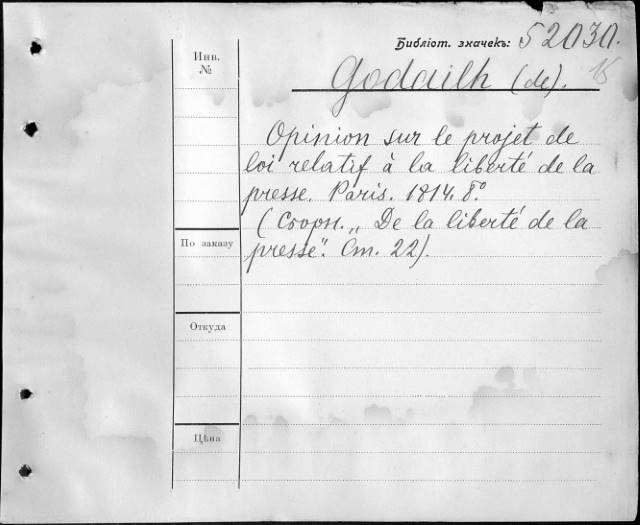 Библiот. значекъ: 52030.
15
Инв. №
Godailh (de).
Opinion sur le projet de
loi relatif à la liberté de la
presse. Paris. 1814. 8º
(Сборн. „De la liberté de la
presse". Ст. 22).
По заказу
Откуда
Цѣна